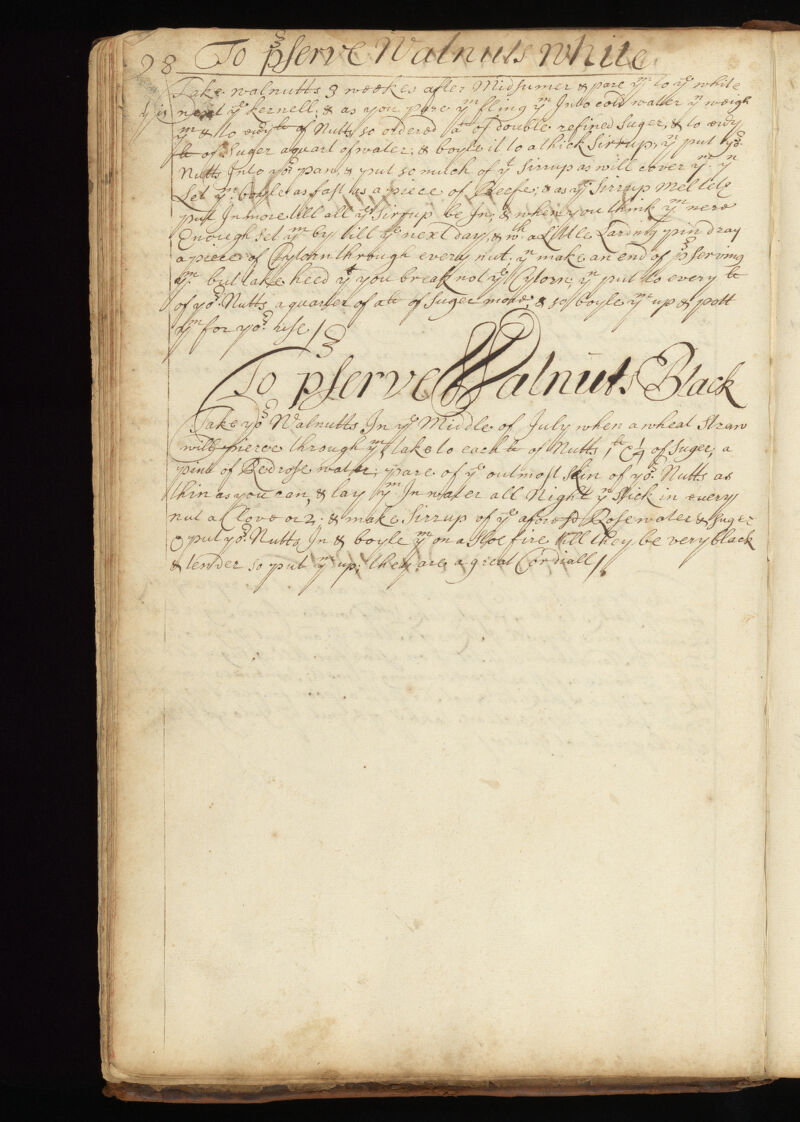 28 To pserve Walnuts white
Take walnutts 3 weekes after Midsumer & pare ym to ye white
next ye kernell; & as you pare ym fling ym Into cold water yn weigh
ym & to every tt of Nutts so ordered a tt of double refined Suger, & to every
tt of Suger a quart of water, & boyle it to a thick Sirrup, yn put yor
Nutts Into yor pan, & put so mutch of ye Sirrup as will cover ym yn
Let ym boyle as fast as a piece of Beefe, & as ye Sirrup melteth
put In more till all ye Sirrup be In; & when you think ym nere
Enough set ym by till ye next day, & wth a Little Larding pin dray
a piece of Cytorn through every nut, yn make an end of pserving
ym but take heed yt you break not ye Cytorn; yn put to every tt
of yor Nutts a quarter of a tt of Suger more; & so boyle ym up & pott
ym for yor use /
To pserve Walnuts Black
Take yor Walnutts In ye Middle of July when a wheat Straw
will pierce through ym take to each tt of Nutts 1 tt & 1/4 of Suger, a
pint of Redrose water; pare of ye outmost skin of yor Nutts as
thin as you can, & lay ym In water all Night yn stick in every
nut a Clove or 2; & make Sirrup of ye aforesd Rosewater & Suger
put yor Nutts In & boyle ym on a sloe fire till they be very black
& tender so put ym up; they are a great Cordiall /